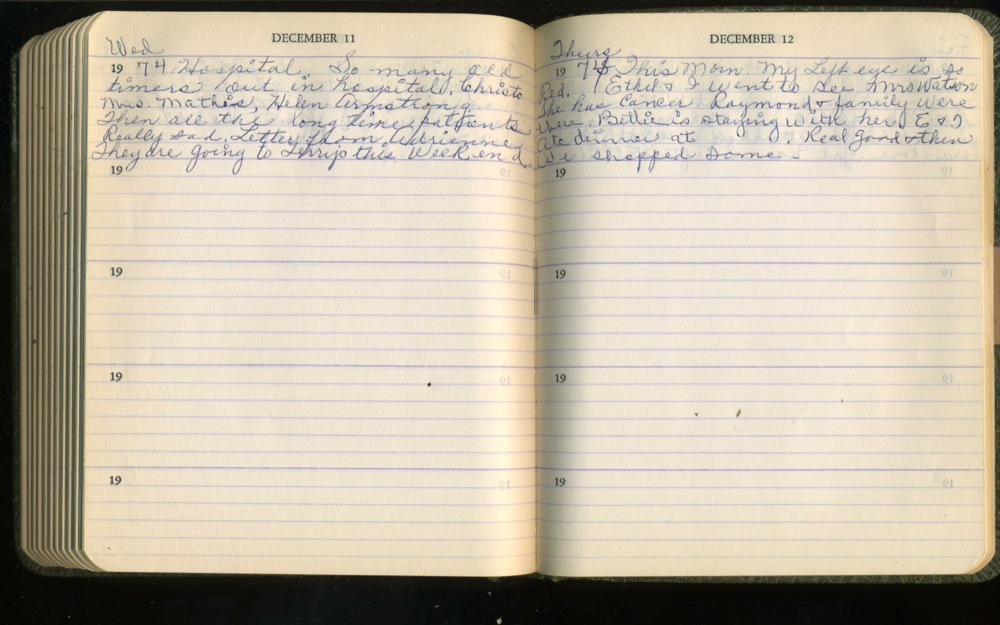 DECEMBER 11
Wed
19 74 Hospital. So many old
timers out in hospital. Christo
Mrs. Mathis, Helen Armstrong
Then all the long time patients
Really sad. Letter from Adrienne
They are going to Terrijo this Week end
19
19
19
19
DECEMBER 12
Thurs
19 74 This Morn. My Left eye is so
Red. Ethel & I went to see Mrs Watson
She has Cancer Raymond & family were
there. Bettie is staying with her. E & I
Ate dinner at . Real Good & then
We shopped some.
19
19
19
19